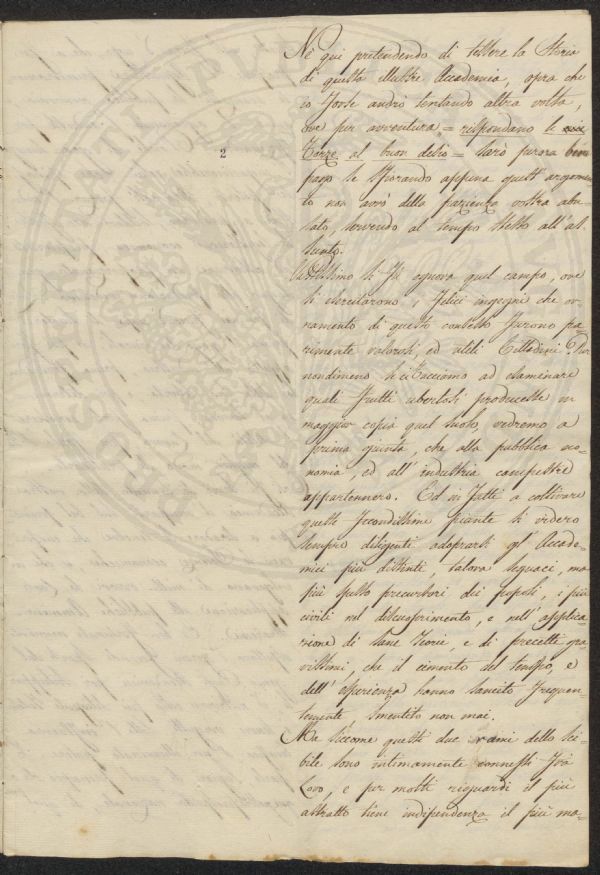 Nè qui pretendendo di tessere la Storia
di questa illustre Accademia, opra che
io forse andrò tentando altra volta,
ove per avventura = rispondano le mie
forze al buon desio = sarò purora ben
pago se sfiorando appena quest'argomen
to non avrò della pazienza vostra abu-
sato, servendo al tempo stesso all'as-
sunto.
Vastissimo si fu ognora quel campo, ove
si esercitarono i felici ingegni che or-
namento di questo consesso furono pa-
rimente valorosi, ed utili Cittadini. Pur
nondimeno se ci facciamo ad esaminare
quali frutti ubertosi producesse in
maggior copia quel suolo, vedremo a
prima giunta, che alla pubblica eco-
nomia, ed all'industria campestre
appartennero. Ed in fatti a coltivare
queste fecondissime piante si videro
sempre diligenti adoprarsi gl'Accade-
mici più distinti, talora seguaci, ma
più spesso precursori dei popoli, i più
civili nel discuoprimento, e nell'applica-
zione di sane teorie, e di precetti gra-
vissimi, che il cimento del tempo, e
dell'esperienza hanno sancito frequen-
temente, smentito non mai.
Ma siccome questi due rami dello sci-
bile sono intimamente connessi frà
Loro, e per molti riguardi il più
astratto tiene indipendenza il più ma-
2